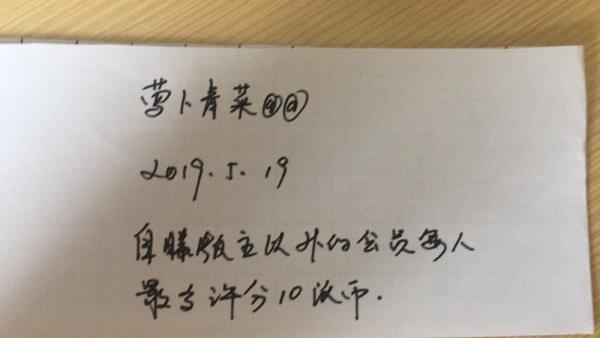 萝卜青菜@@
2019.5.19
自曝版主以外的会员每人
最高评分10派币.